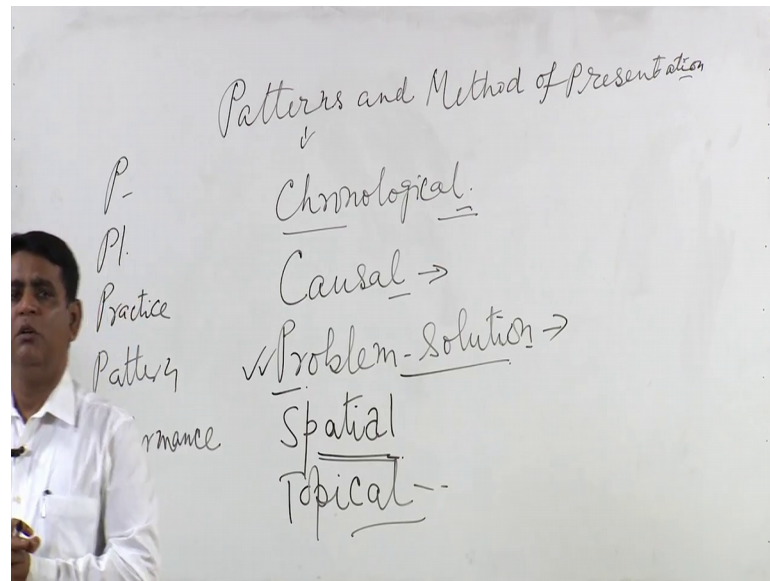 Patterns and Method of Presentation
P-
Pl.
Practice
Pattern
rmance
Chronological.
Causal →
✓✓ Problem-Solution →
Spatial
Topical---